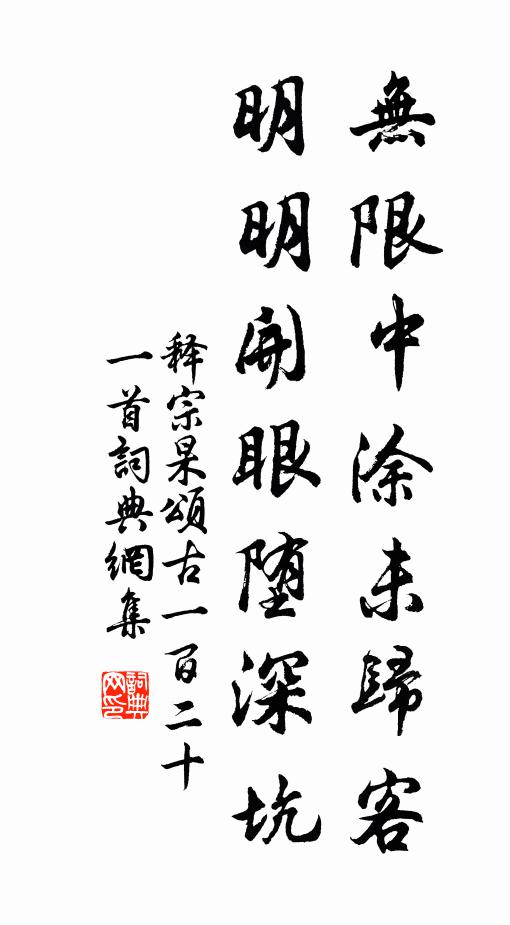 無限中涂未歸客
明明開眼堕深坑
释宗杲頌古一百二十
一首詞典網集
詞典网印